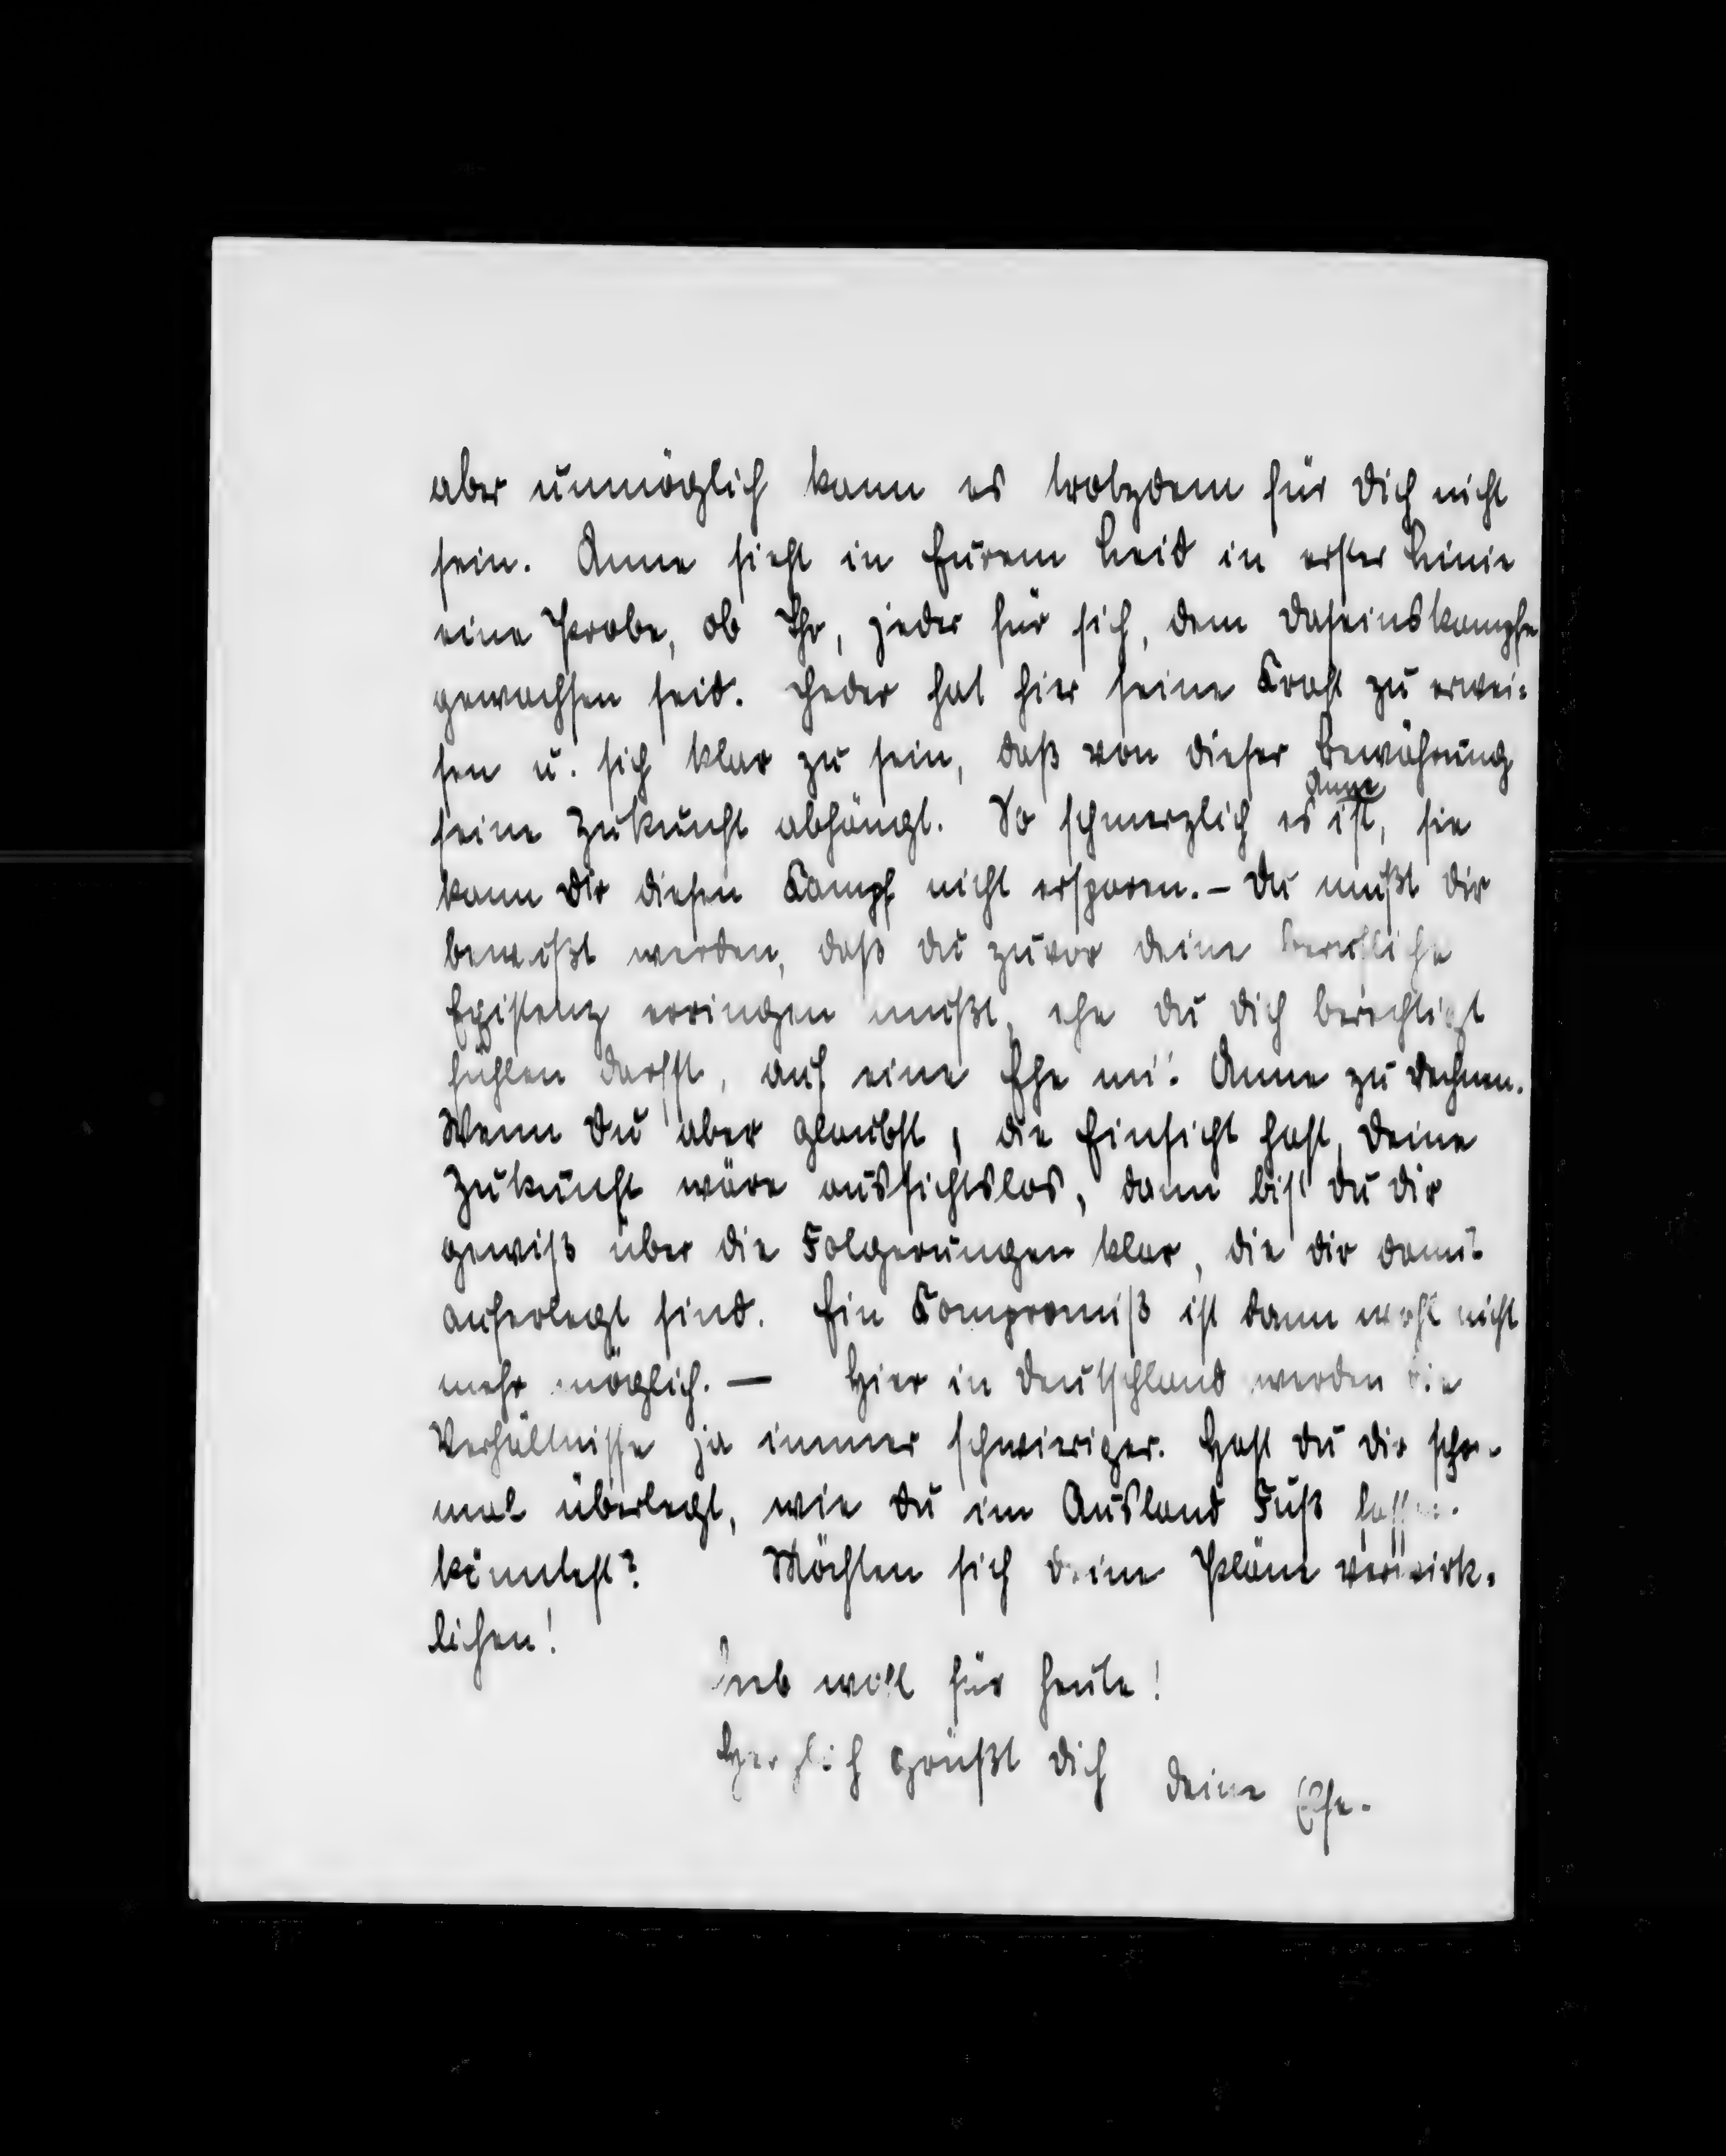 aber unmöglich kann es trotzdem für Dich nicht
sein. Anne sieht in Eurem Leid in erster Linie
eine Probe, ob Ihr, jeder für sich, dem Daseinskampfe
gewachsen seid. Jeder hat hier seine Kraft zu erwei=
sen u. sich klar zu sein, daß von dieser Bewährung
Anne
seine Zukunft abhängt. So schmerzlich es ist, sie
kann Dir diesen Kampf nicht ersparen. – Du mußt Dir
bewußt werden, daß Du zuvor Deine berufliche
Existenz erringen mußt, ehe Du Dich berechtigt
fühlen darfst, auf eine Ehe mit Anne zu rechnen.
Wenn Du aber glaubst, die Einsicht hast, Deine
Zukunft wäre aussichtslos, dann bist Du Dir
gewiß über die Folgerungen klar, die Dir damit
auferlegt sind. Ein Kompromiß ist dann wohl nicht
mehr möglich. — Hier in Deutschland werden die
Verhältnisse ja immer schwieriger. Hast Du Dir schon
mal überlegt, wie Du im Ausland Fuß fassen
könntest? Möchten sich Deine Pläne verwirk=
lichen!
Leb wohl für heute!
Herzlich grüßt Dich Deine